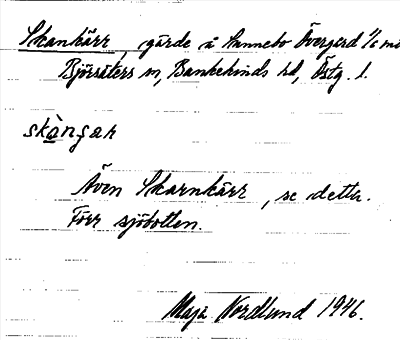 Skankärr, gärde å Sannebo Övergård 1/6 mi
Björsäters sn, Bankekinds hd, Östg. l.
skànçar
Även Skarnkärr, se detta.
Förr sjöbotten.
Maja Nordlund 1946.